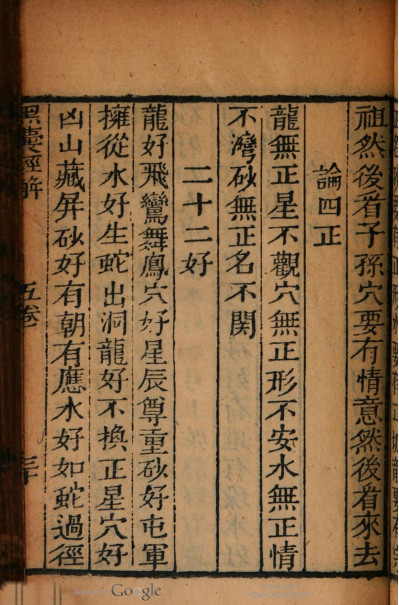 祖然後看子孫穴要有情意然後看來去
論四正
龍無正星不觀穴無正形不安水無正情
不灣砂無正名不関
二十二好
龍好飛鸞舞鳳穴好星辰尊重砂好屯軍
擁從水好生蛇出洞龍好不換正星穴好
凶山藏屏砂好有朝有應水好如蛇過徑
黑囊經解 五卷
Google